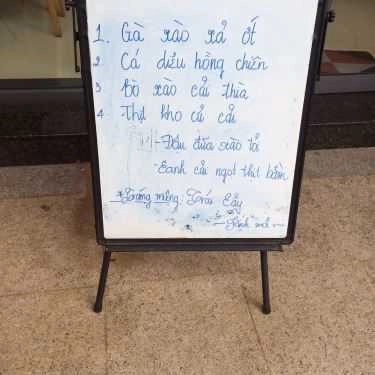 1. Gà xào xả ớt
2 Cá diêu hồng chiên
3 Bò xào cải thìa
4 Thịt kho củ cải
- Đậu đũa xào tỏi
- Canh cải ngọt thịt bằm
* Tráng miệng: Trái Cây